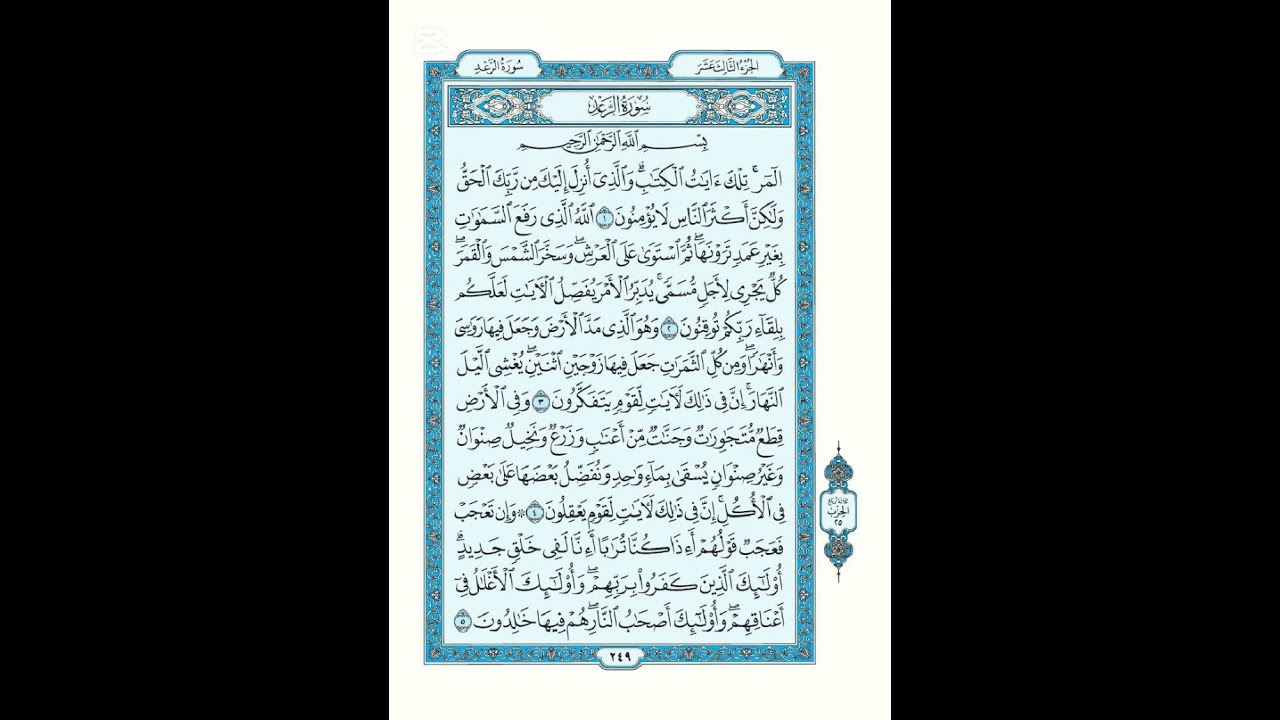 الجزء الثالث عشر
سورة الرعد
سُورَةُ الرَّعْدِ
بِسْمِ ٱللَّهِ ٱلرَّحْمَٰنِ ٱلرَّحِيمِ
الٓمٓرۚ تِلۡكَ ءَايَٰتُ ٱلۡكِتَٰبِۗ وَٱلَّذِيٓ أُنزِلَ إِلَيۡكَ مِن رَّبِّكَ ٱلۡحَقُّ
وَلَٰكِنَّ أَكۡثَرَ ٱلنَّاسِ لَا يُؤۡمِنُونَ ١ ٱللَّهُ ٱلَّذِي رَفَعَ ٱلسَّمَٰوَٰتِ
بِغَيۡرِ عَمَدٖ تَرَوۡنَهَاۖ ثُمَّ ٱسۡتَوَىٰ عَلَى ٱلۡعَرۡشِۖ وَسَخَّرَ ٱلشَّمۡسَ وَٱلۡقَمَرَۖ
كُلّٞ يَجۡرِي لِأَجَلٖ مُّسَمّٗىۚ يُدَبِّرُ ٱلۡأَمۡرَ يُفَصِّلُ ٱلۡأٓيَٰتِ لَعَلَّكُم
بِلِقَآءِ رَبِّكُمۡ تُوقِنُونَ ٢ وَهُوَ ٱلَّذِي مَدَّ ٱلۡأَرۡضَ وَجَعَلَ فِيهَا رَوَٰسِيَ
وَأَنۡهَٰرٗاۖ وَمِن كُلِّ ٱلثَّمَرَٰتِ جَعَلَ فِيهَا زَوۡجَيۡنِ ٱثۡنَيۡنِۖ يُغۡشِي ٱلَّيۡلَ
ٱلنَّهَارَۚ إِنَّ فِي ذَٰلِكَ لَأٓيَٰتٖ لِّقَوۡمٖ يَتَفَكَّرُونَ ٣ وَفِي ٱلۡأَرۡضِ
قِطَعٞ مُّتَجَٰوِرَٰتٞ وَجَنَّٰتٞ مِّنۡ أَعۡنَٰبٖ وَزَرۡعٞ وَنَخِيلٞ صِنۡوَانٞ
وَغَيۡرُ صِنۡوَانٖ يُسۡقَىٰ بِمَآءٖ وَٰحِدٖ وَنُفَضِّلُ بَعۡضَهَا عَلَىٰ بَعۡضٖ
فِي ٱلۡأُكُلِۚ إِنَّ فِي ذَٰلِكَ لَأٓيَٰتٖ لِّقَوۡمٖ يَعۡقِلُونَ ٤ ۞ وَإِن تَعۡجَبۡ
فَعَجَبٞ قَوۡلُهُمۡ أَءِذَا كُنَّا تُرَٰبًا أَءِنَّا لَفِي خَلۡقٖ جَدِيدٍۗ
أُوْلَٰٓئِكَ ٱلَّذِينَ كَفَرُواْ بِرَبِّهِمۡۖ وَأُوْلَٰٓئِكَ ٱلۡأَغۡلَٰلُ فِيٓ
أَعۡنَاقِهِمۡۖ وَأُوْلَٰٓئِكَ أَصۡحَٰبُ ٱلنَّارِۖ هُمۡ فِيهَا خَٰلِدُونَ ٥
الحزب
٢٥
٢٤٩